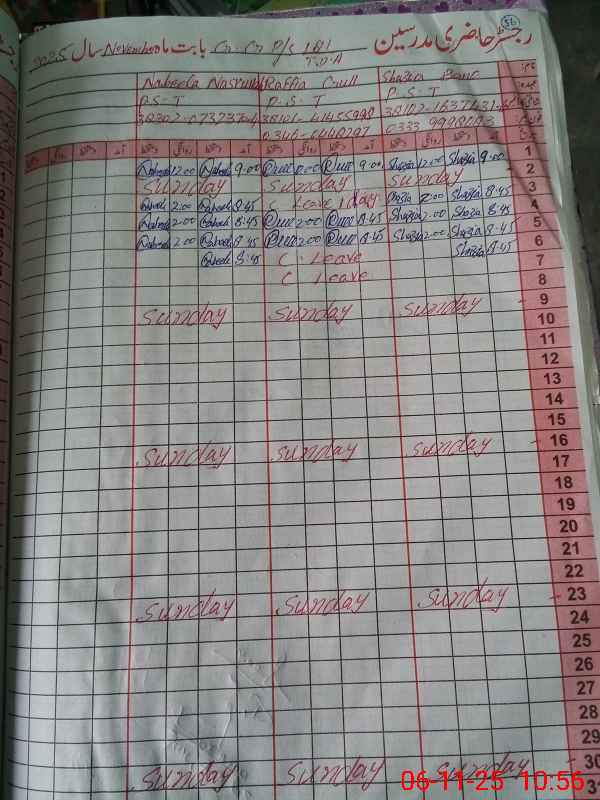 56
رجسٹر حاضری مدرسین G.G P/S 181 بابت ماہ November سال 2025
T.D.A
Shazia Bano
P.S.T
0333
Raffia Gull
P.S.T
Nabeela
P.S.T
1 Shazia 9:00 Shazia 12:00 Gull 9:00 Gull Nabeela 9:00 Nabeela 12:00
2 Sunday Sunday Sunday
3 Shazia 8:45 Shazia 2:00 C Leave 1 day Nabeela 8:45 Nabeela 2:00
4 Shazia 8:45 Shazia 2:00 Gull 8:45 Gull 2:00 Nabeela 8:45 Nabeela 2:00
5 Shazia 8:45 Shazia 2:00 Gull 8:45 Gull 2:00 Nabeela 8:45 Nabeela 2:00
6 Shazia 8:45 C. Leave Nabeela 8:45
7 C Leave
8
9 Sunday Sunday Sunday
10
11
12
13
14
15
16 Sunday Sunday Sunday
17
18
19
20
21
22
23 Sunday Sunday Sunday
24
25
26
27
28
29
30 Sunday Sunday Sunday
31
06-11-25 10:56